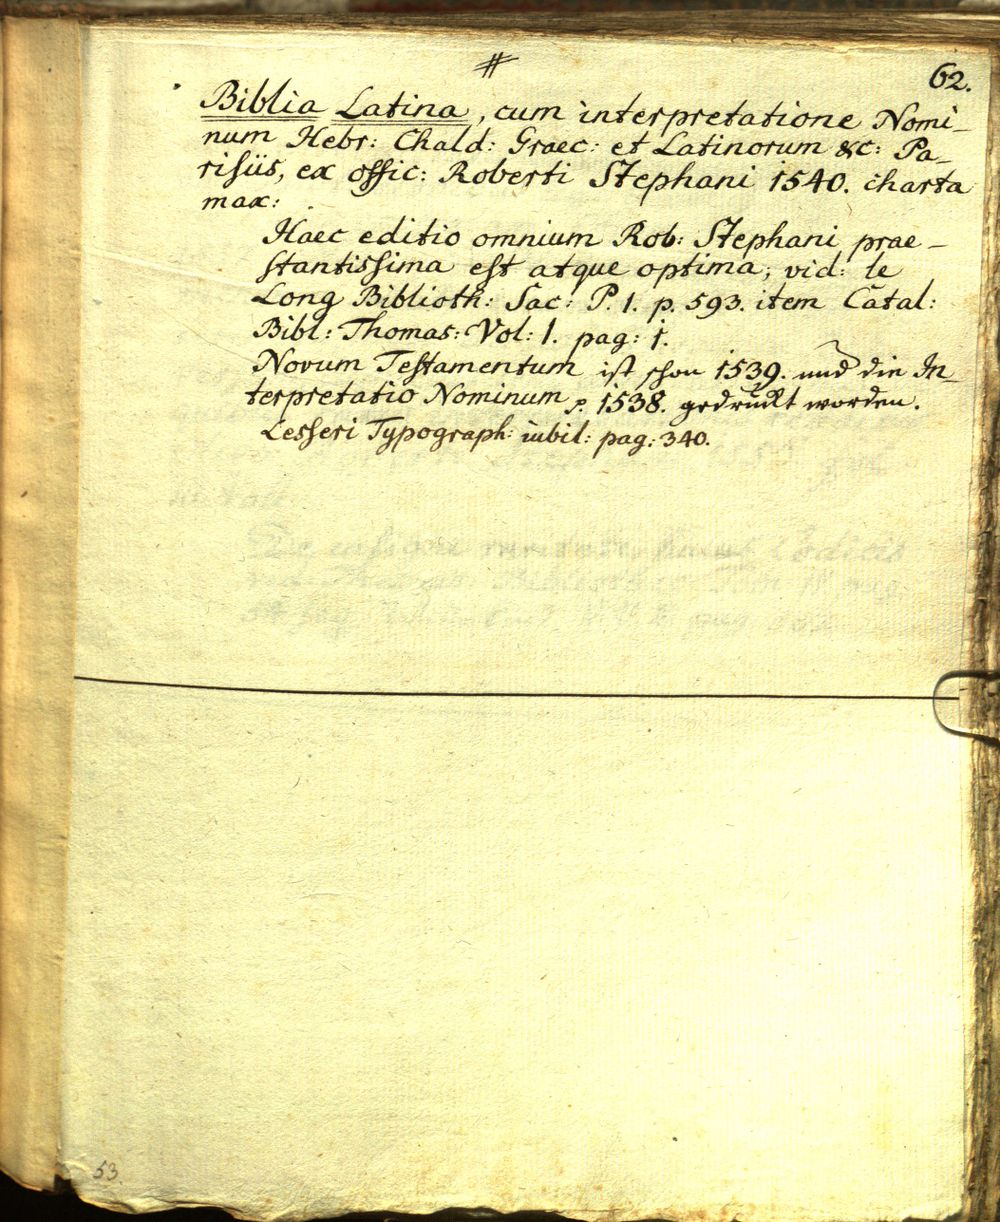 #
62.
Biblia Latina, cum interpretatione Nomi-
num Hebr: Chald: Graec: et Latinorum &c: Pa-
risiis, ex offic: Roberti Stephani 1540. charta
max:
Haec editio omnium Rob: Stephani prae-
stantissima est atque optima; vid: le
Long Biblioth: Sac: P. 1. p. 593. item Catal:
Bibl: Thomas: Vol: 1. pag: 1.
Novum Testamentum ist schon 1539. und die In-
terpretatio Nominum 1538. gedruckt worden.
Lesseri Typograph: iubil: pag: 340.
53